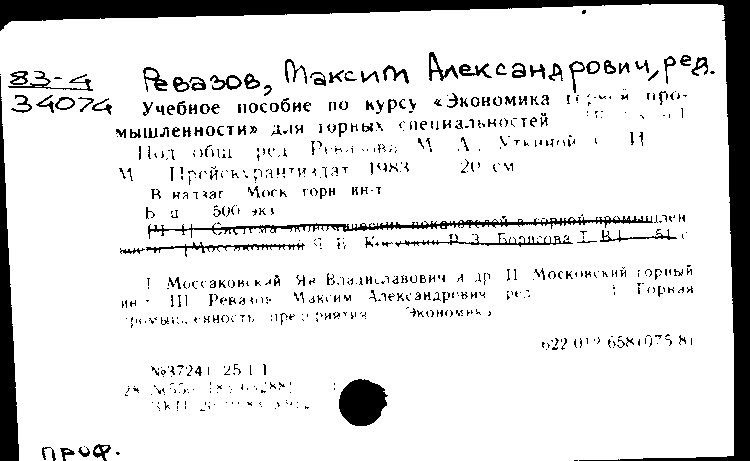 83-4
34074
Ревазов, Максим Александрович, ред.
Учебное пособие по курсу «Экономика горной про-
мышленности» для горных специальностей
Под общ ред Ревазова М А, Уткиной С И
М Прейскурантиздат 1983 20 см
В надзаг Моск горн ин-т
Б ц 500 экз
[Ч 1] Система экономических показателей в горной промышлен
ности [Моссаковский Я В Борисова Т В] 51 с
I Моссаковский Ян Владиславович и др II Московский горный
ин-т III Ревазов Максим Александрович ред 1 Горная
промышленность предприятия Экономика
622 012 658(075 8)
№37241 25
28
проф.